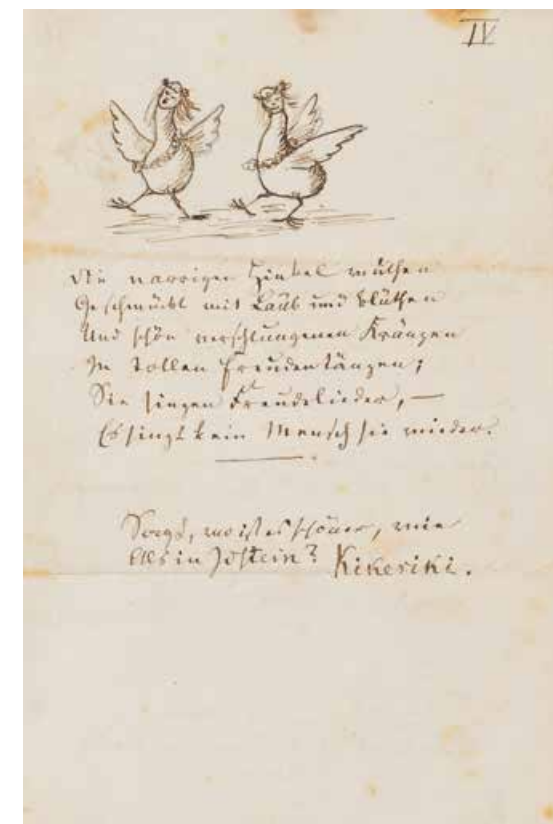 IV
Die narrigen Hinkel wüthen
Geschmückt mit Laub und Blüthen
Und schön verschlungenen Kränzen
In tollen Freudentänzen;
Sie singen Freudelieder, —
Es singt kein Mensch sie wieder.
Sagt, wo ist es schöner, wie
Als in Idstein? Kikeriki.